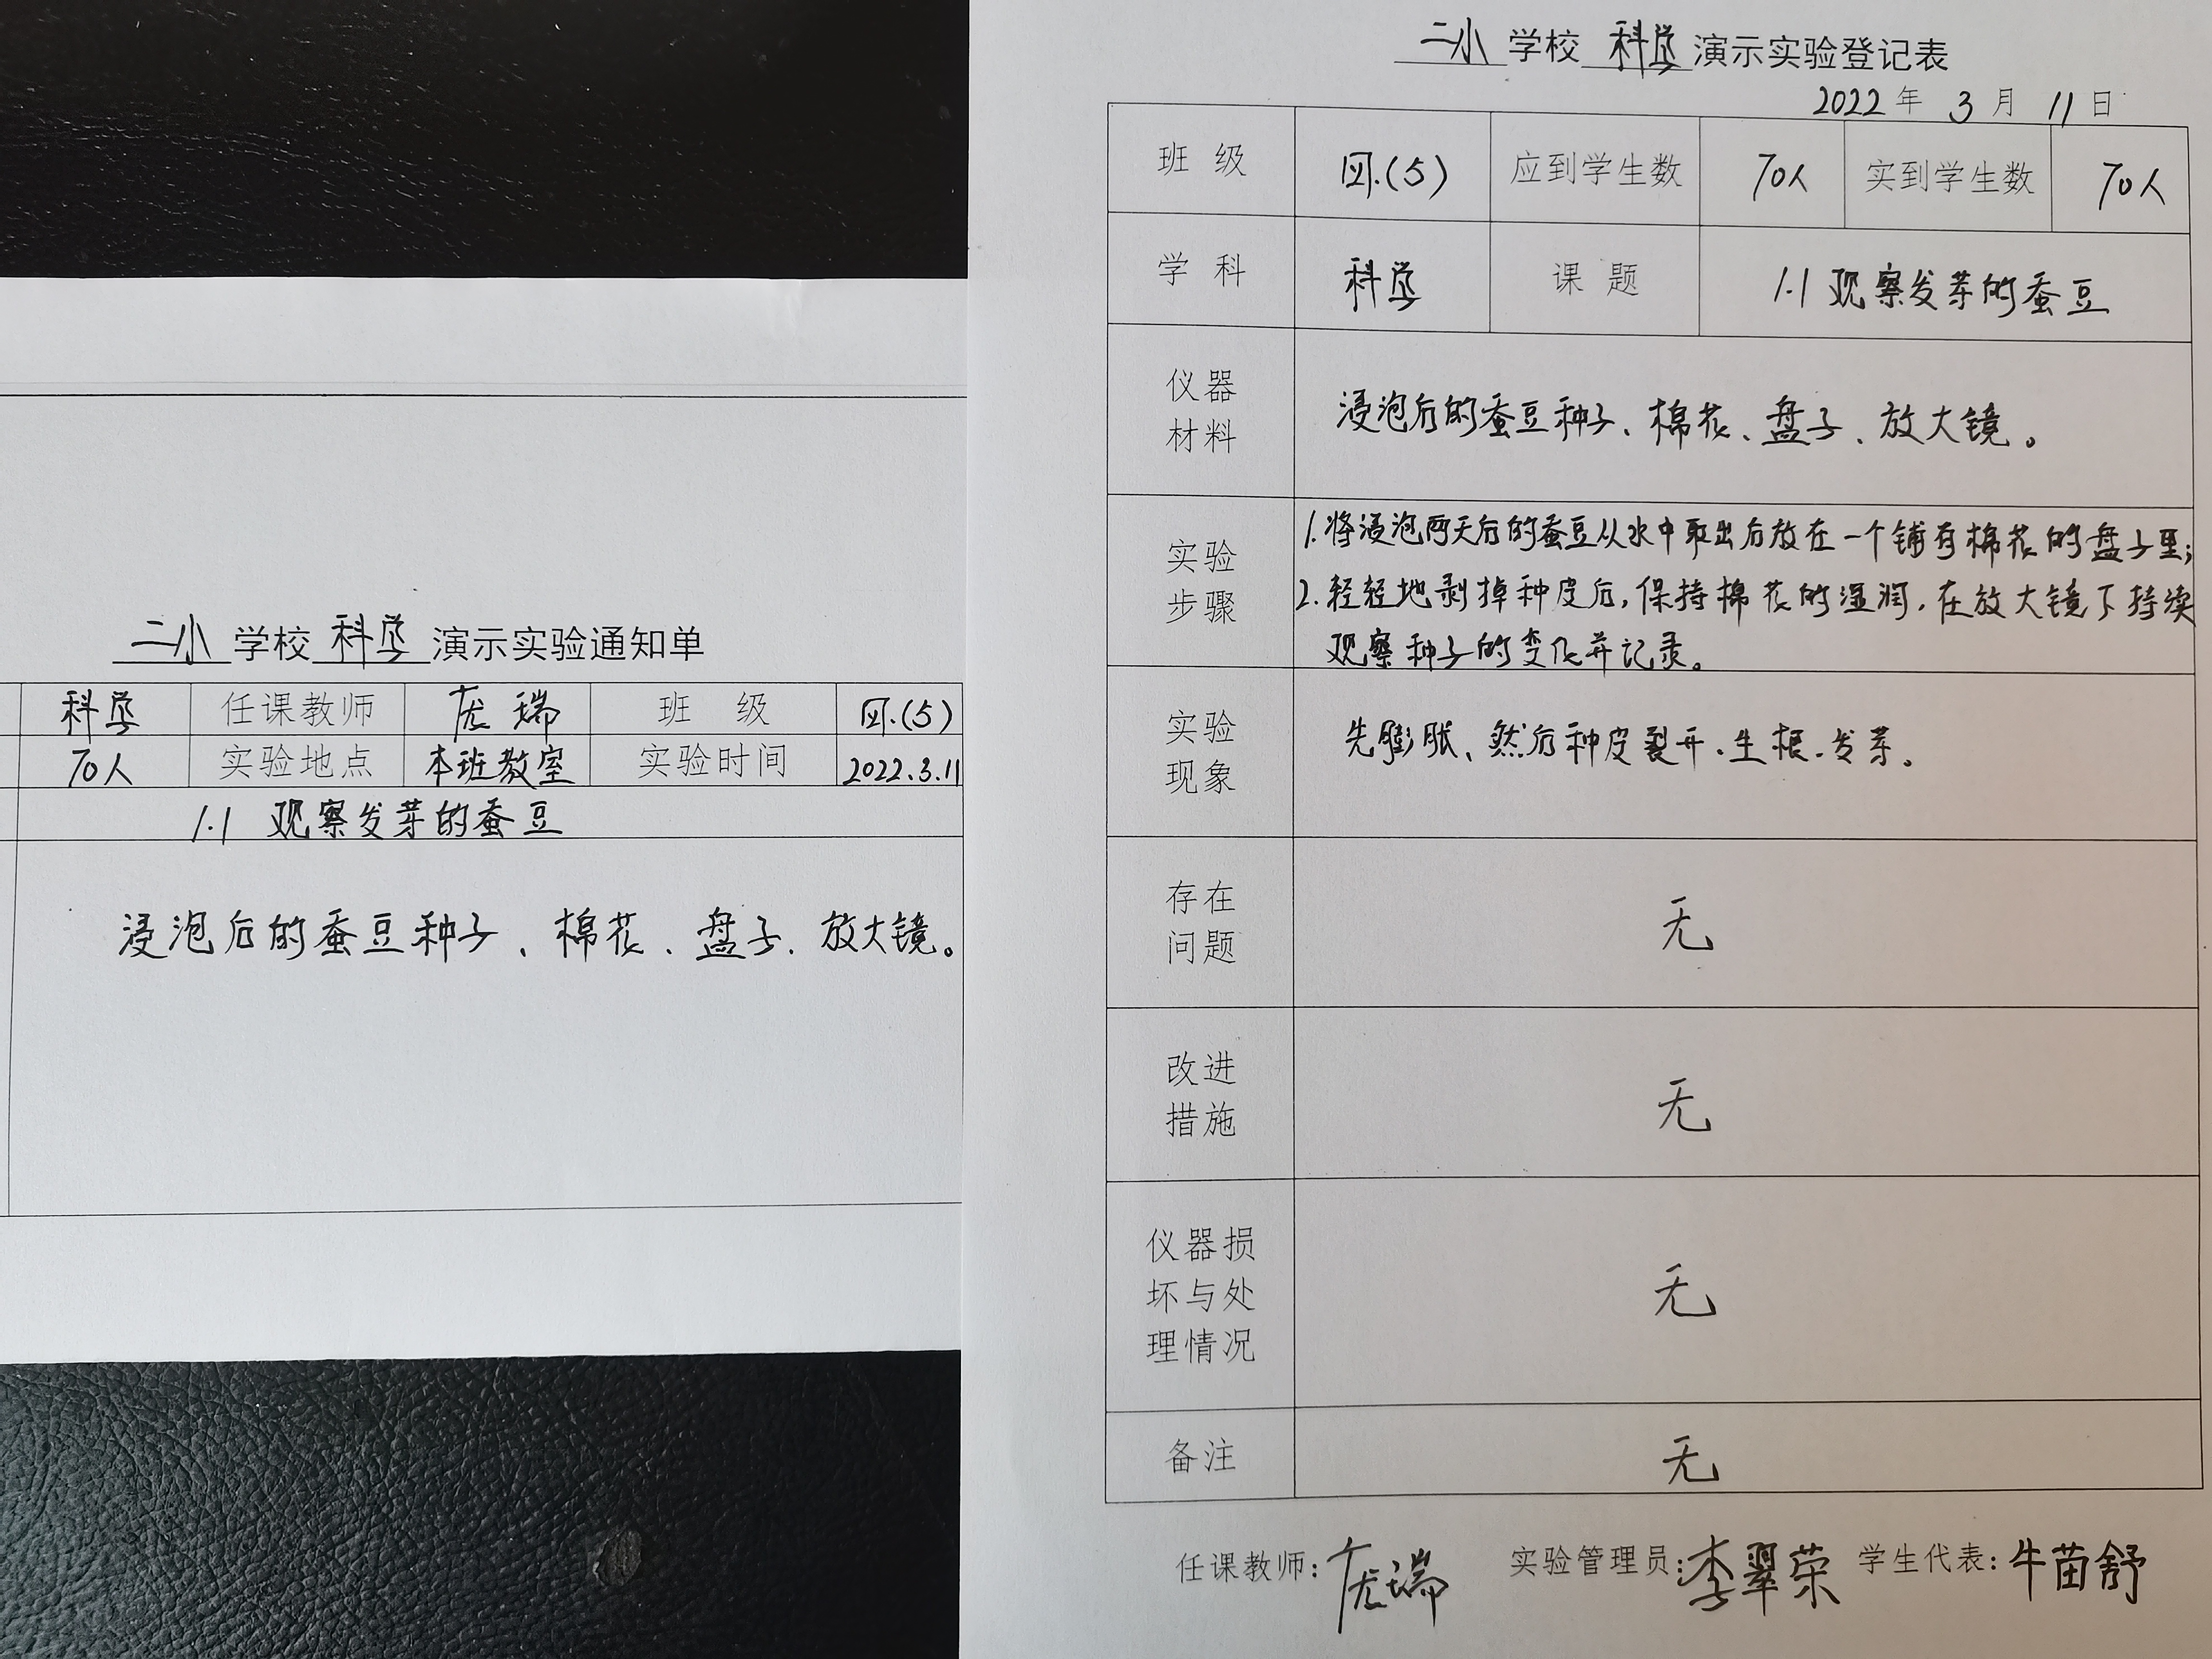 二小学校科学演示实验通知单
科学 任课教师 庞瑞 班 级 四.(5)
70人 实验地点 本班教室 实验时间 2022.3.11
1.1 观察发芽的蚕豆
浸泡后的蚕豆种子、棉花、盘子、放大镜。
二小学校科学演示实验登记表
2022年3月11日
班 级 四.(5) 应到学生数 70人 实到学生数 70人
学 科 科学 课 题 1.1 观察发芽的蚕豆
仪器
材料
浸泡后的蚕豆种子、棉花、盘子、放大镜。
实验
步骤
1.将浸泡两天后的蚕豆从水中取出后放在一个铺有棉花的盘子里;
2.轻轻地剥掉种皮后,保持棉花的湿润,在放大镜下持续
观察种子的变化并记录。
实验
现象
先膨胀、然后种皮裂开、生根、发芽。
存在
问题
无
改进
措施
无
仪器损
坏与处
理情况
无
备注 无
任课教师:庞瑞 实验管理员:李翠荣 学生代表:牛苗舒